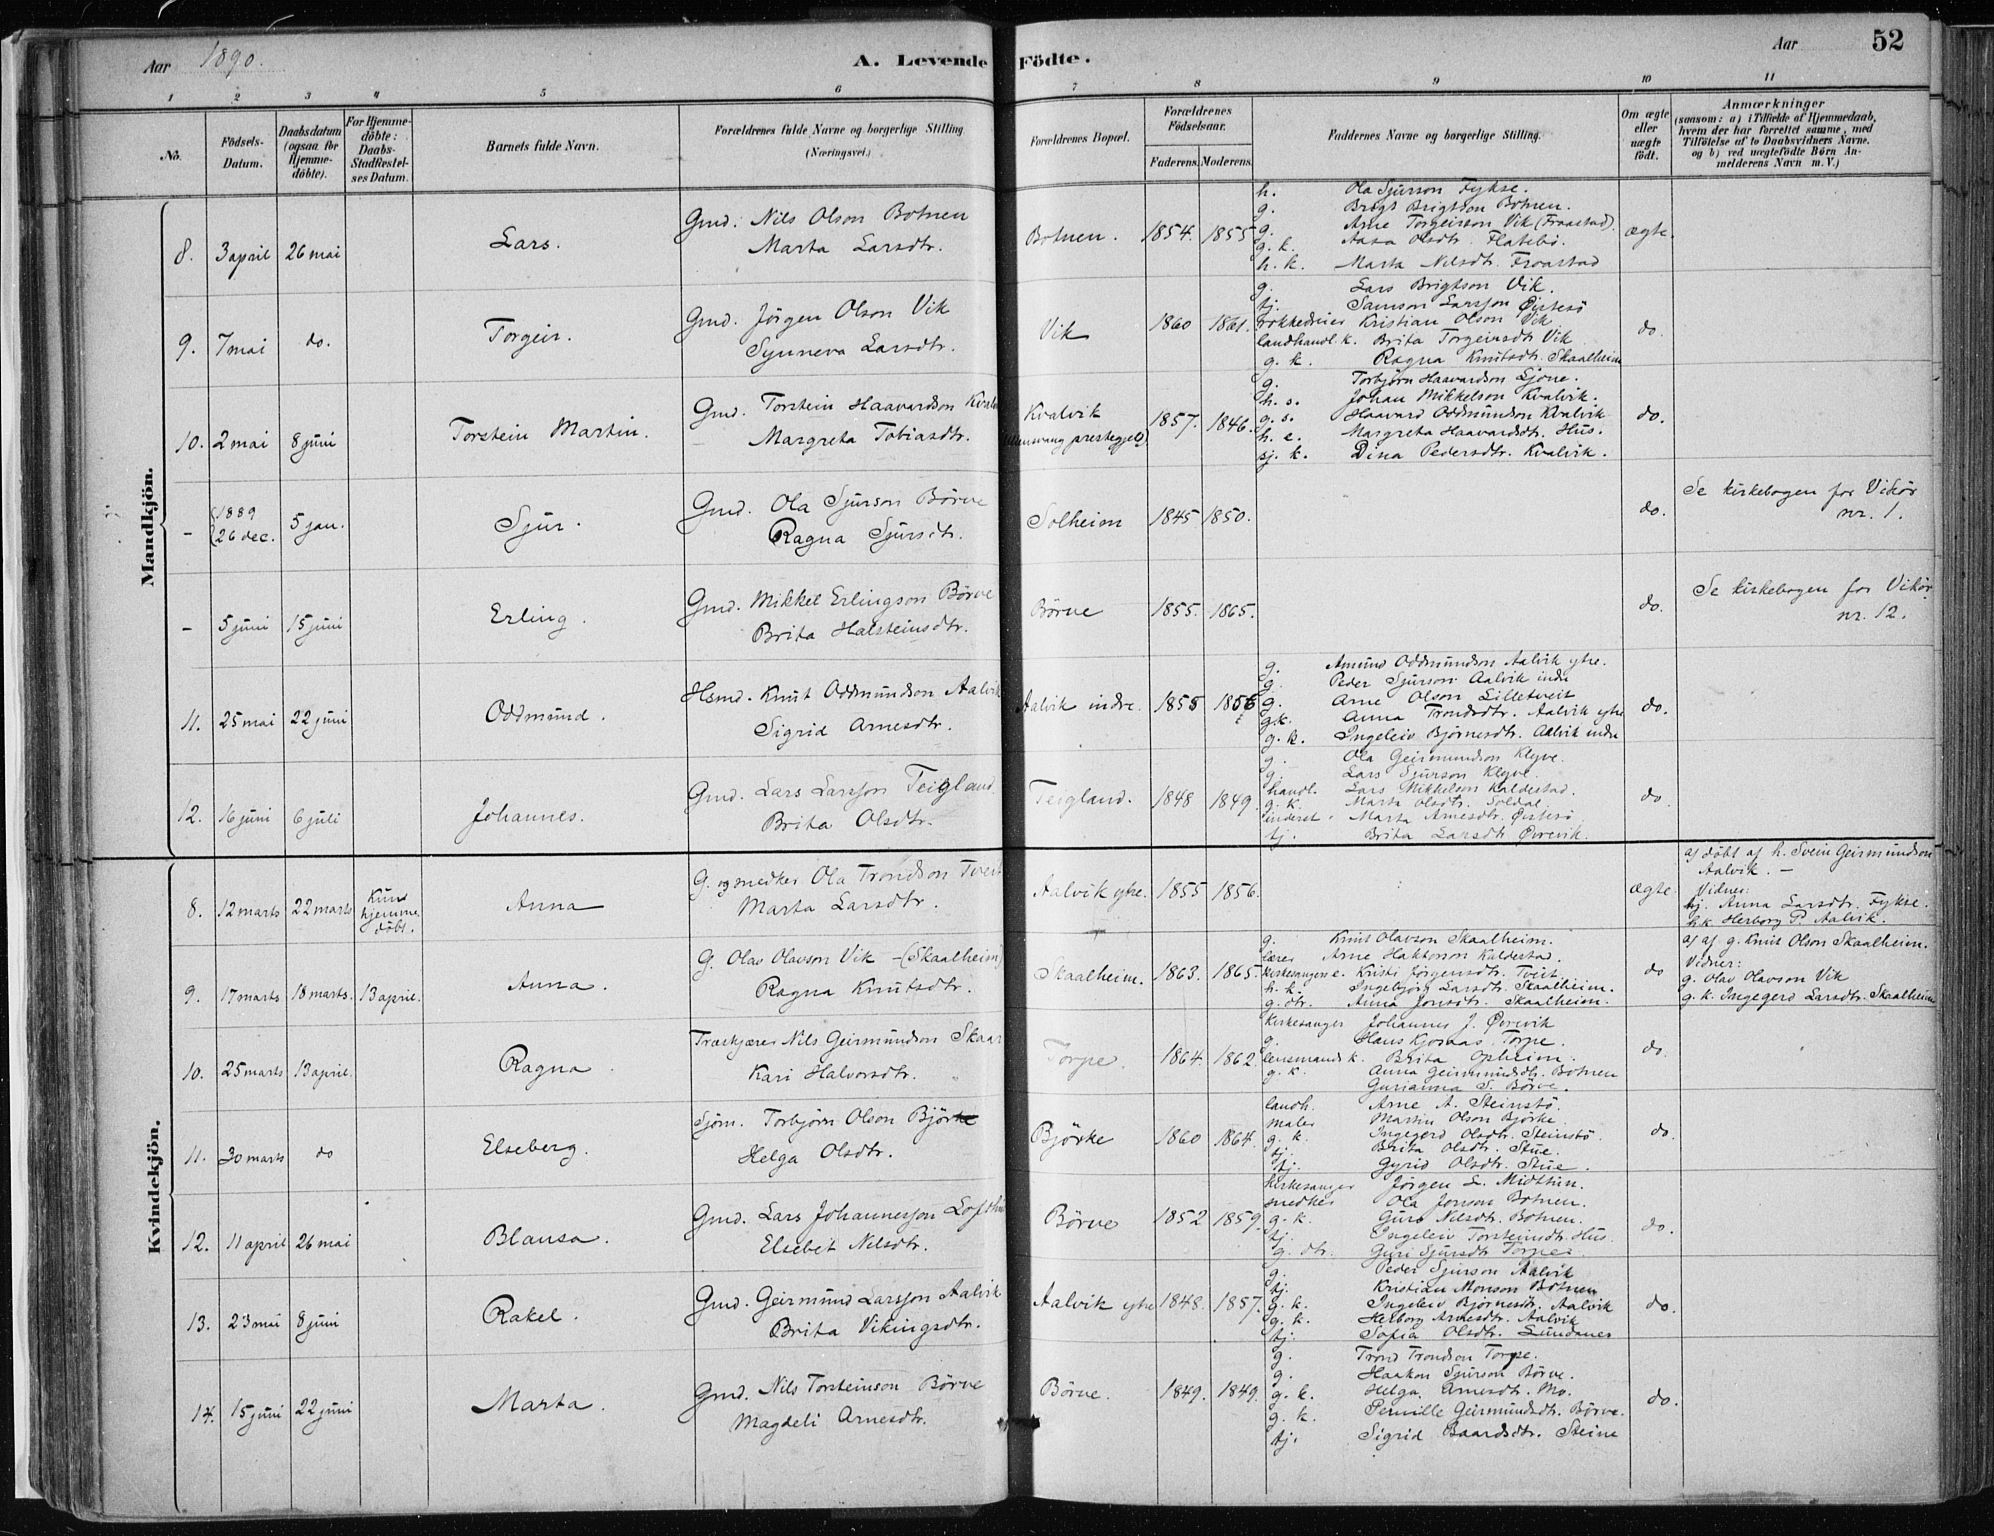 Aar 1890.
A. Levende Födte.
Aar
52
1 2 3 4 5 6 7 8 9 10 11
No.
Födsels-Datum.
Daabsdatum (ogsaa for Hjemme-döbte).
For Hjemme-döbte: Daabs-Stadfæstel-ses Datum.
Barnets fulde Navn.
Forældrenes fulde Navne og borgerlige Stilling (Næringsvei.)
Forældrenes Bopæl.
Forældrenes Födselsaar.
Faderens. Moderens.
Faddernes Navne og borgerlige Stilling.
Om ægte eller uægte födt.
Anmærkninger
(saasom: a) i Tilfælde af Hjemmedaab,
hvem der har forrettet samme, med
Tilföielse af to Daabsvidners Navne.
og b) ved uægtefödte Börn An-
melderens Navn m. V.)
Mandkjön.
8. 3 april 26 mai Lars. Gmd. Nils Olson Botnen
Marta Larsdtr.
Botnen. 1854. 1855
h. Ola Sjurson Fykse.
g. Brigt Brigtson Botnen.
g. Arne Torgeirson Vik (Fraastad).
g. k. Aasa Olsdtr. Flatebö.
h. k. Marta Nilsdtr. Fraastad
ægte.
9. 7 mai do. Torgeir. Gmd. Jörgen Olson Vik
Synneva Larsdtr.
Vik 1860 1861.
g. Lars Brigtson Vik.
tj. Samson Larsson Øistesö
rokkedreier Kristian Olson Vik
landhandl. k. Brita Torgeirsdtr Vik
g. k. Ragna Knutsdtr. Skaalheim
do.
10. 2 mai 8 juni Torstein Martin. Gmd. Torstein Haavardson Kvalvik
Margreta Tobiasdtr.
Kvalvik
(Ullensvang prestegjeld) 1857. 1846.
g. Torbjörn Haavardson Sjone.
h. s. Johan Mikkelson Kvalvik.
g. s. Haavard Oddmundson Kvalvik
h. e. Margreta Haavardsdtr. Hus.
sj. k. Dina Pedersdtr. Kvalvik.
do.
- {1889 26 dec. 5 jan. Sjur. Gmd. Ola Sjurson Börve
Ragna Sjursdtr.
Solheim 1845 1850. do.
Se kirkebogen for Vikör
nr. 1.
- 5 juni 15 juni Erling. Gmd. Mikkel Erlingson Börve
Brita Halsteinsdtr.
Börve 1855. 1865. do.
Se kirkebogen for Vikör
nr. 12.
11. 25 mai 22 juni Oddmund. Hsmd. Knut Oddmundson Aalvik
Sigrid Arnesdtr.
Aalvik indre. 1855 1856
g. Amund Oddmundson Aalvik ytre.
g. Peder Sjurson Aalvik indre
g. Arne Olson Lilletveit
g.k. Anna Trondsdtr. Aalvik ytre
g. k. Ingeleiv Björnesdtr. Aalvik indre
do.
12. 16 juni 6 juli Johannes. Gmd. Lars Larsson Teigland
Brita Olsdtr.
Teigland. 1848 1849.
g. Ola Geirmundson Klyve.
g. Lars Sjurson Klyve.
handl. Lars Mikkelson Kaldestad.
g. k. Marta Olsdtr. Soldal.
inderst. Marta Arnesdtr. Øistesö
tj. Brita Larsdtr Øvrevik.
do.
Kvindekjön.
8. 12 marts 22 marts Kun hjemme döbt. Anna G. og snedker Ola Trondson Tveit
Marta Larsdtr.
Aalvik ytre. 1855 1856. ægte.
a) döbt af h. Svein Geirmundson
Aalvik. -
Vidner:
tj. Anna Larsdtr. Fykse.
h.k. Herborg P. Aalvik.
9. 17 marts 18 marts. 13 april. Anna. G. Olav Olavson Vik - (Skaalheim)
Ragna Knutsdtr.
Skaalheim. 1863. 1865.
g. Knut Olavson Skaalheim.
lærer Arne Haktorson Kaldestad.
kirkesangers e. Kristi Jörgensdtr. Tveit.
h. k. Ingebjörg Larsdtr. Skaalheim.
g. dtr. Anna Jonsdtr. Skaalheim.
do
a) af g. Knut Olson Skaalheim.
Vidner:
g. Olav Olavson Vik
g. k. Ingegerd Larsdtr. Skaalheim
10. 25 marts 13 april. Ragna. Træskjærer Nils Geirmundson Skaar
Kari Halvorsdtr.
Torpe. 1864. 1862
kirkesanger Johannes J. Øvrevik
g. Hans Torpe.
lensmands k. Brita Opheim.
g. k. Anna Geirmundsdtr. Botnen
Gurianna S. Börve.
do.
11. 30 marts do Elseberg. Sjöm. Torbjörn Olson Björke
Helga Olsdtr.
Björke 1860 1864.
landh. Arne A. Steinstö.
maler Martin Olson Björke
g. k. Ingegerd Olsdtr. Steinstö.
tj. Brita Olsdtr. Stue.
tj. Gyrid Olsdtr. Stue.
do.
12. 11 april 26 mai Blansa. Gmd. Lars Johannesson Lofthus
Elsebet Nilsdtr.
Börve 1852 1859.
kirkesanger Jörgen L. Midttun.
snedker Ola Jonson Botnen.
g. k. Guro Nilsdtr. Botnen.
tj. Ingeleiv Torsteinsdtr. Hus.
g. dtr. Guri Sjursdtr Torpe.
do.
13. 23 mai 8 juni Rakel. Gmd. Geirmund Larsson Aalvik
Brita Vikingsdtr.
Aalvik ytre 1848. 1857.
g. Peder Sjurson Aalvik
tj. Kristian Monson Botnen
g. k. Ingeleiv Björnesdtr. Aalvik
g. k. Herborg Arnesdtr. Aalvik
tj. Sofia Olsdtr. Sundanes
do.
14. 15 juni 22 juni Marta. Gmd. Nils Torsteinson Börve
Magdeli Arnesdtr.
Börve. 1849. 1849.
g. Trond Trondson Torpe.
g. Haakon Sjurson Börve.
g. k. Helga Arnesdtr. Mo.
g. k. Pernille Geirmundsdtr. Börve.
tj. Sigrid Baardsdtr. Steine
do.